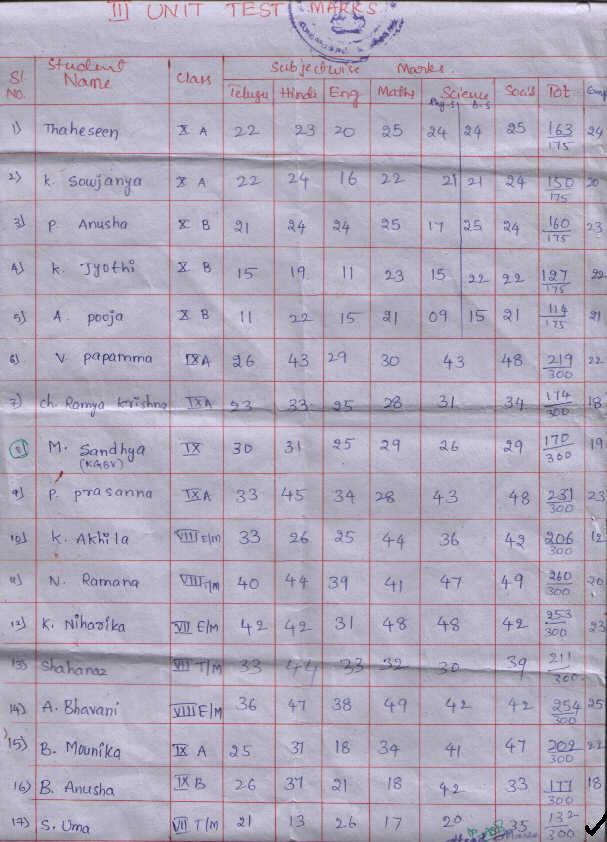 III UNIT TEST MARKS
Sl. No. Student Name Class Subjectwise Marks.
Telugu Hindi Eng Maths Science Phy.S B.S Soc.S Tot Comp
1) Thaheseen X A 22 23 20 25 24 24 25 163/175 24
2) K. Sowjanya X A 22 24 16 22 21 21 24 150/175 20
3) P. Anusha X B 21 24 24 25 17 25 24 160/175 23
4) K. Jyothi X B 15 19 11 23 15 22 22 127/175 22
5) A. pooja X B 11 22 15 21 09 15 21 114/175 21
6) V. papamma IX A 26 43 29 30 43 48 219/300 22
7) ch. Ramya Krishna IX A 23 33 25 28 31 34 174/300 18
8) M. Sandhya (KGBV) IX 30 31 25 29 26 29 170/300 19
9) P. prasanna IX A 33 45 34 28 43 48 231/300 23
10) K. Akhila VIII E/M 33 26 25 44 36 42 206/300 12
11) N. Ramana VIII T/M 40 44 39 41 47 49 260/300 20
12) K. Niharika VII E/M 42 42 31 48 48 42 253/300 23
13) Shahanaz VII T/M 33 44 33 32 30 39 211/300
14) A. Bhavani VIII E/M 36 47 38 49 42 42 254/300 25
15) B. Mounika IX A 25 37 18 34 41 47 202/300 22
16) B. Anusha IX B 26 37 21 18 42 33 177/300 18
17) S. Uma VII T/M 21 13 26 17 20 35 132/300